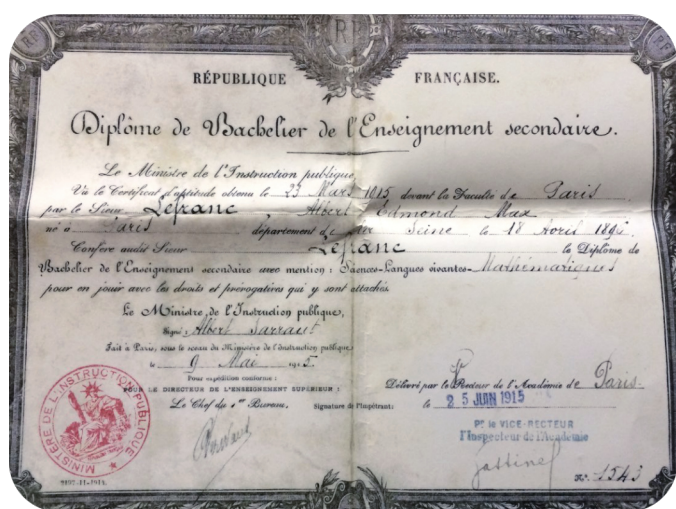 RF
RF
RF
RÉPUBLIQUE FRANÇAISE.
Diplôme de Bachelier de l'Enseignement secondaire.
Le Ministre de l'Instruction publique,
Vu le Certificat d'aptitude obtenu le 23 Mars 1915, devant la Faculté de Paris
par le Sieur Lefranc Albert Edmond Max
né à Paris département de la Seine le 18 Avril
Confère audit Sieur Lefranc le Diplôme de
Bachelier de l'Enseignement secondaire avec mention : Sciences-Langues vivantes-Mathématiques
pour en jouir avec les droits et prérogatives qui y sont attachés.
Le Ministre de l'Instruction publique,
Signé : Albert Sarraut
Fait à Paris, sous le sceau du Ministère de l'Instruction publique,
le 9 Mai 1915.
Pour expédition conforme :
POUR LE DIRECTEUR DE L'ENSEIGNEMENT SUPÉRIEUR :
Le Chef du 1er Bureau,
Signature de l'Impétrant :
Délivré par le Recteur de l'Académie de Paris.
le 25 JUIN 1915
Pr le VICE-RECTEUR
l'Inspecteur de l'Académie
Nº 1543
MINISTÈRE DE L'INSTRUCTION PUBLIQUE
2497-11-1914.